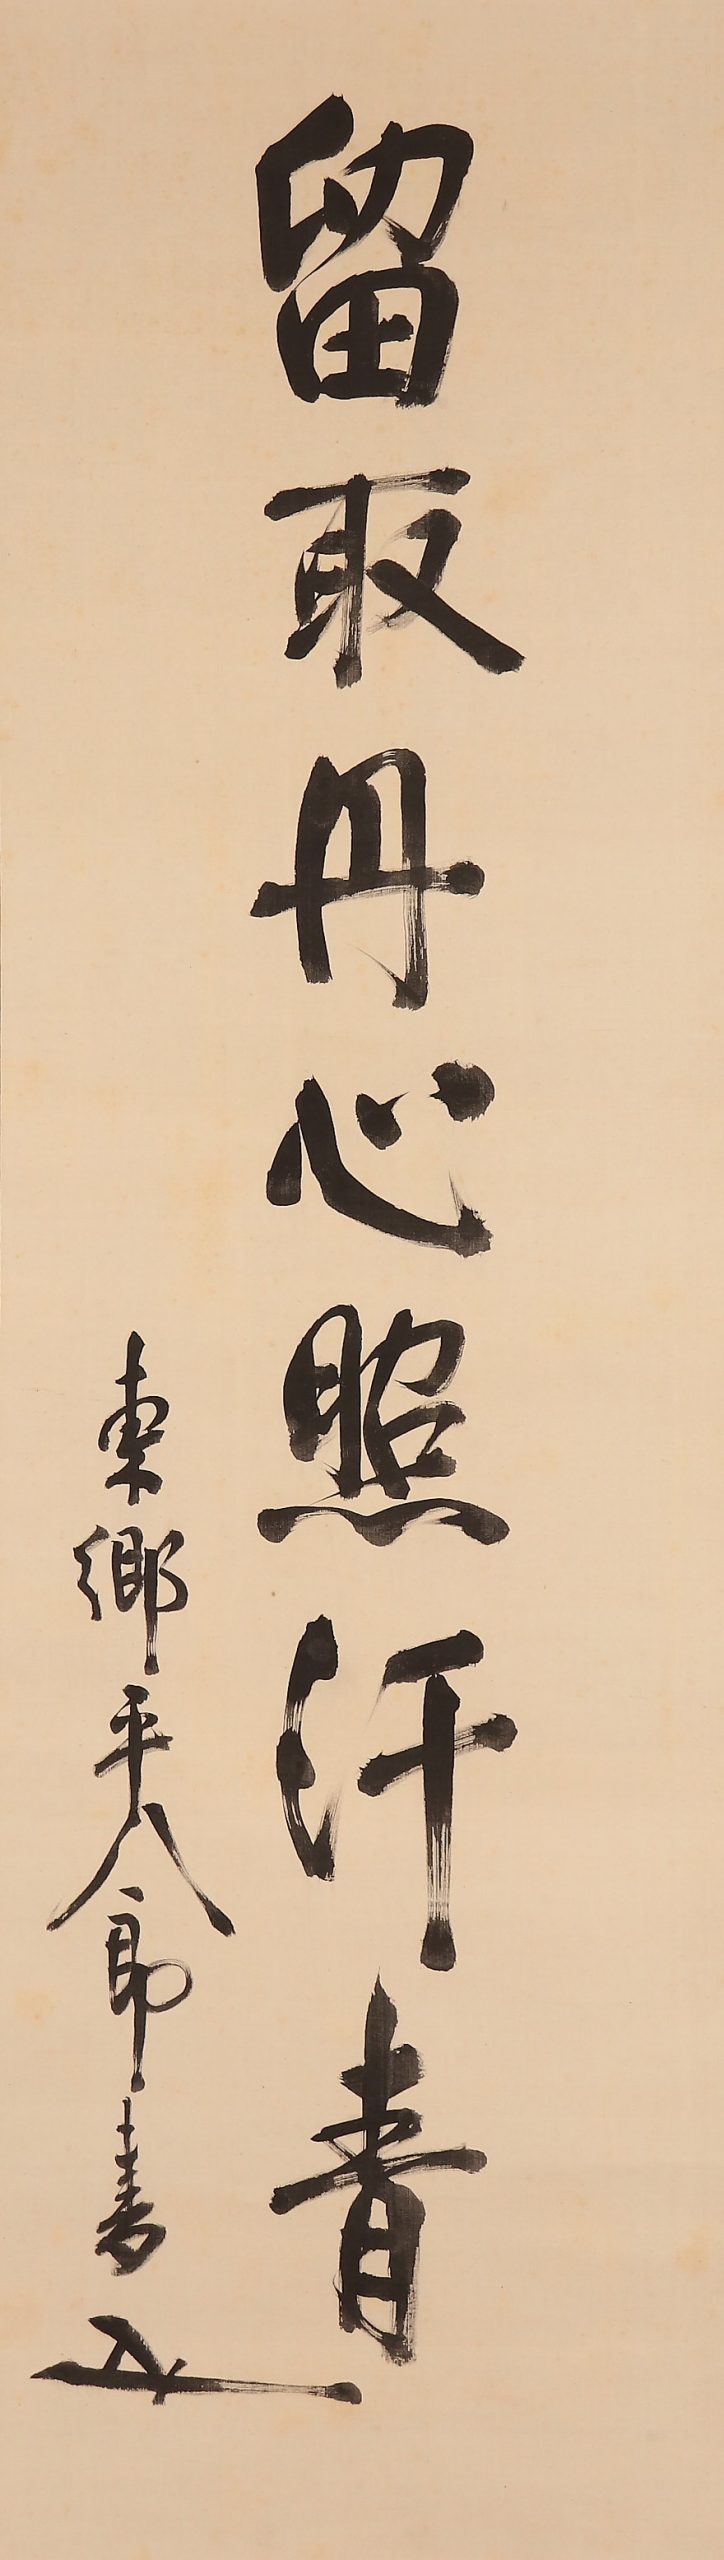 留取丹心照汗青
東郷平八郎書